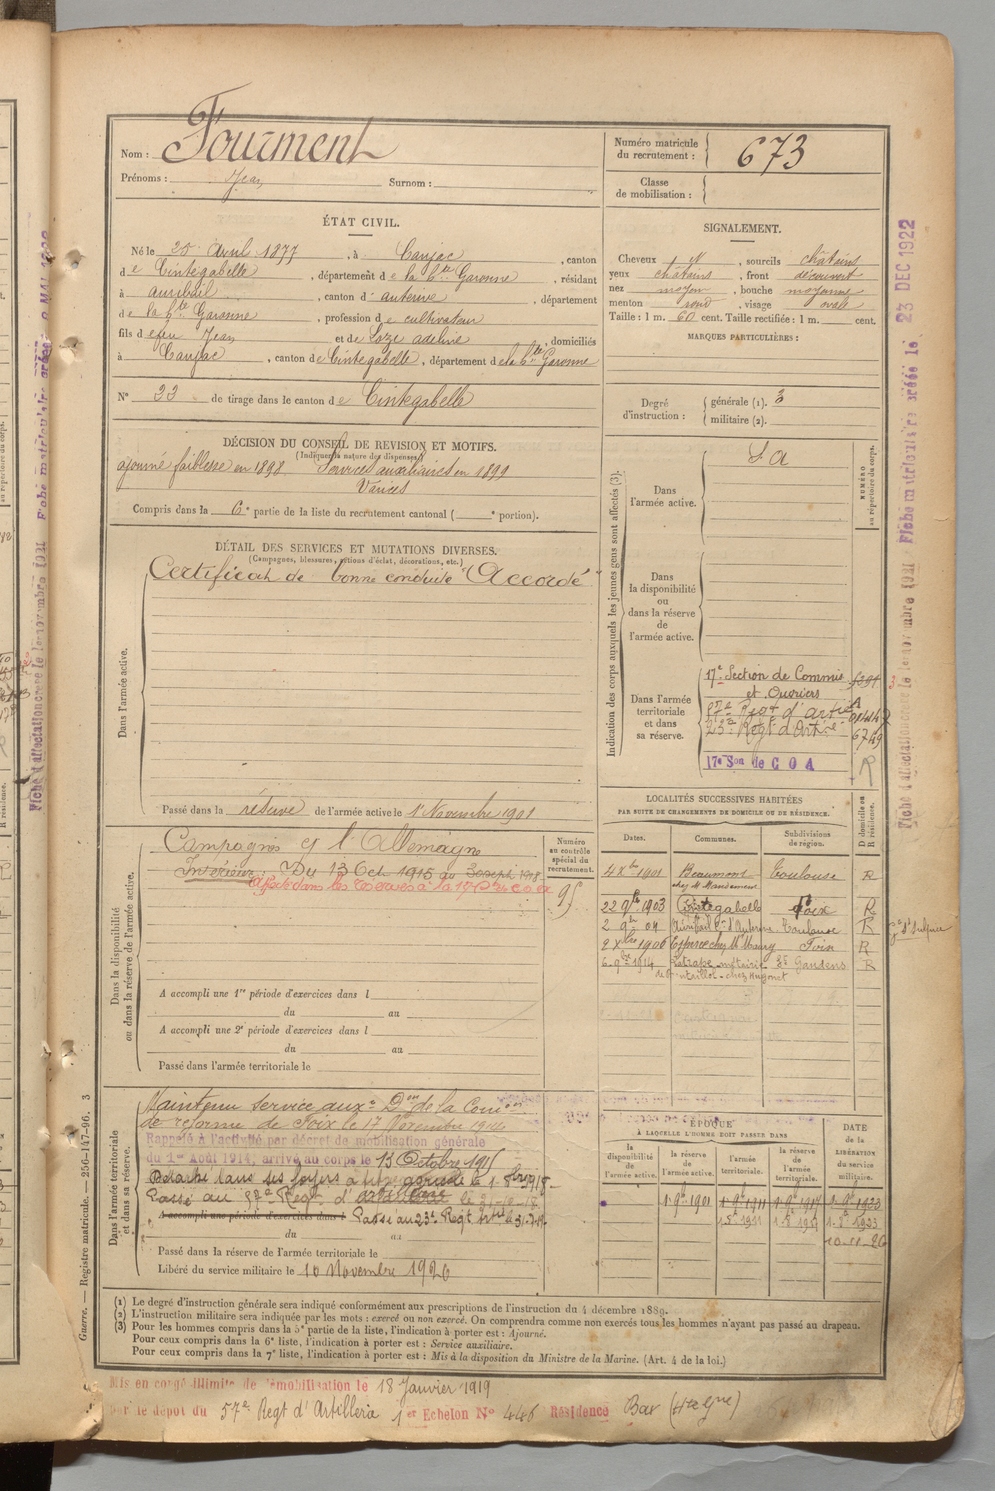 Nom : Fourment
Prénoms : Jean Surnom :
Numéro matricule du recrutement : 673
Classe de mobilisation :
ÉTAT CIVIL.
Né le 25 Avril 1877, à Caujac, canton
de Cintegabelle, département de la Hte Garonne, résidant
à auribail, canton d'auterive, département
de la Hte Garonne, profession de cultivateur
fils de feu Jean et de Loze adeline, domiciliés
à Caujac, canton de Cintegabelle, département de la Hte Garonne
N° 33 de tirage dans le canton de Cintegabelle
SIGNALEMENT.
Cheveux , sourcils châtains
yeux châtains, front découvert
nez moyen, bouche moyenne
menton rond, visage ovale
Taille : 1 m. 60 cent. Taille rectifiée : 1 m. cent.
MARQUES PARTICULIÈRES :
Degré d'instruction :
générale (1). 3
militaire (2).
DÉCISION DU CONSEIL DE REVISION ET MOTIFS.
(Indiquer la nature des dispenses)
ajourné faiblesse en 1898 Services auxiliaires en 1899
Varices
Compris dans la 6e partie de la liste du recrutement cantonal ( e portion).
DÉTAIL DES SERVICES ET MUTATIONS DIVERSES.
(Campagnes, blessures, actions d'éclat, décorations, etc.)
Dans l'armée active.
Certificat de bonne conduite "Accordé"
Passé dans la réserve de l'armée active le 1er Novembre 1901
Indication des corps auxquels les jeunes gens sont affectés (3).
NUMÉRO au répertoire du corps.
Dans l'armée active.
S A
Dans la disponibilité ou dans la réserve de l'armée active.
Dans l'armée territoriale et dans sa réserve.
17e Section de Commis
et Ouvriers
57e Regt d'artie
23e Regt d'Artie
6749
17e Son de C O A
R
Dans la disponibilité ou dans la réserve de l'armée active.
Campagnes et l'Allemagne
Intérieur : Du 13 Oct 1915 au
Numéro au contrôle spécial du recrutement.
95
A accompli une 1re période d'exercices dans l
du au
A accompli une 2e période d'exercices dans l
du au
Passé dans l'armée territoriale le
LOCALITÉS SUCCESSIVES HABITÉES
PAR SUITE DE CHANGEMENTS DE DOMICILE OU DE RÉSIDENCE.
Dates. Communes. Subdivisions de région. D domicile ou R résidence.
4 Xbre 1901 Beaumont Toulouse R
22 9bre 1903 Cintegabelle Foix R
2 9bre 04 Auribail Con d'Auterive Toulouse R
2 Xbre 1906 Esperce chez M. Foix R
6 9bre 1914 Latrape métairie St Gaudens R
Dans l'armée territoriale et dans sa réserve.
Maintenu service auxre Don de la Comon
de réforme de Foix le 17 Novembre 1914
Rappelé à l'activité par décret de mobilisation générale
du 1er Août 1914, arrivé au corps le 13 Octobre 1915
Détaché dans ses foyers
Passé au 57e Regt d'artillerie le 21-10-18
A accompli une période d'exercices dans l Passé au 23e Regt
du au
Passé dans la réserve de l'armée territoriale le
Libéré du service militaire le 10 Novembre 1926
ÉPOQUE
A LAQUELLE L'HOMME DOIT PASSER DANS
la disponibilité de l'armée active. la réserve de l'armée active. l'armée territoriale. la réserve de l'armée territoriale. DATE de la LIBÉRATION du service militaire.
1-9bre 1901 1-9bre 1911 1-9bre 1917 1-9bre 1923
10-11-26
(1) Le degré d'instruction générale sera indiqué conformément aux prescriptions de l'instruction du 4 décembre 1889.
(2) L'instruction militaire sera indiquée par les mots : exercé ou non exercé. On comprendra comme non exercés tous les hommes n'ayant pas passé au drapeau.
(3) Pour les hommes compris dans la 5e partie de la liste, l'indication à porter est : Ajourné.
Pour ceux compris dans la 6e liste, l'indication à porter est : Service auxiliaire.
Pour ceux compris dans la 7e liste, l'indication à porter est : Mis à la disposition du Ministre de la Marine. (Art. 4 de la loi.)
Mis en congé illimité de démobilisation le 18 Janvier 1919
par le dépôt du 57e Regt d'Artillerie 1er Echelon N° 446 Résidence Bax (Hte Gne)
Guerre. — Registre matricule. — 256-147-96. 3
Fiche d'affectation créée le 1er novembre 1921 Fiche matriculaire créée le 23 DEC 1922